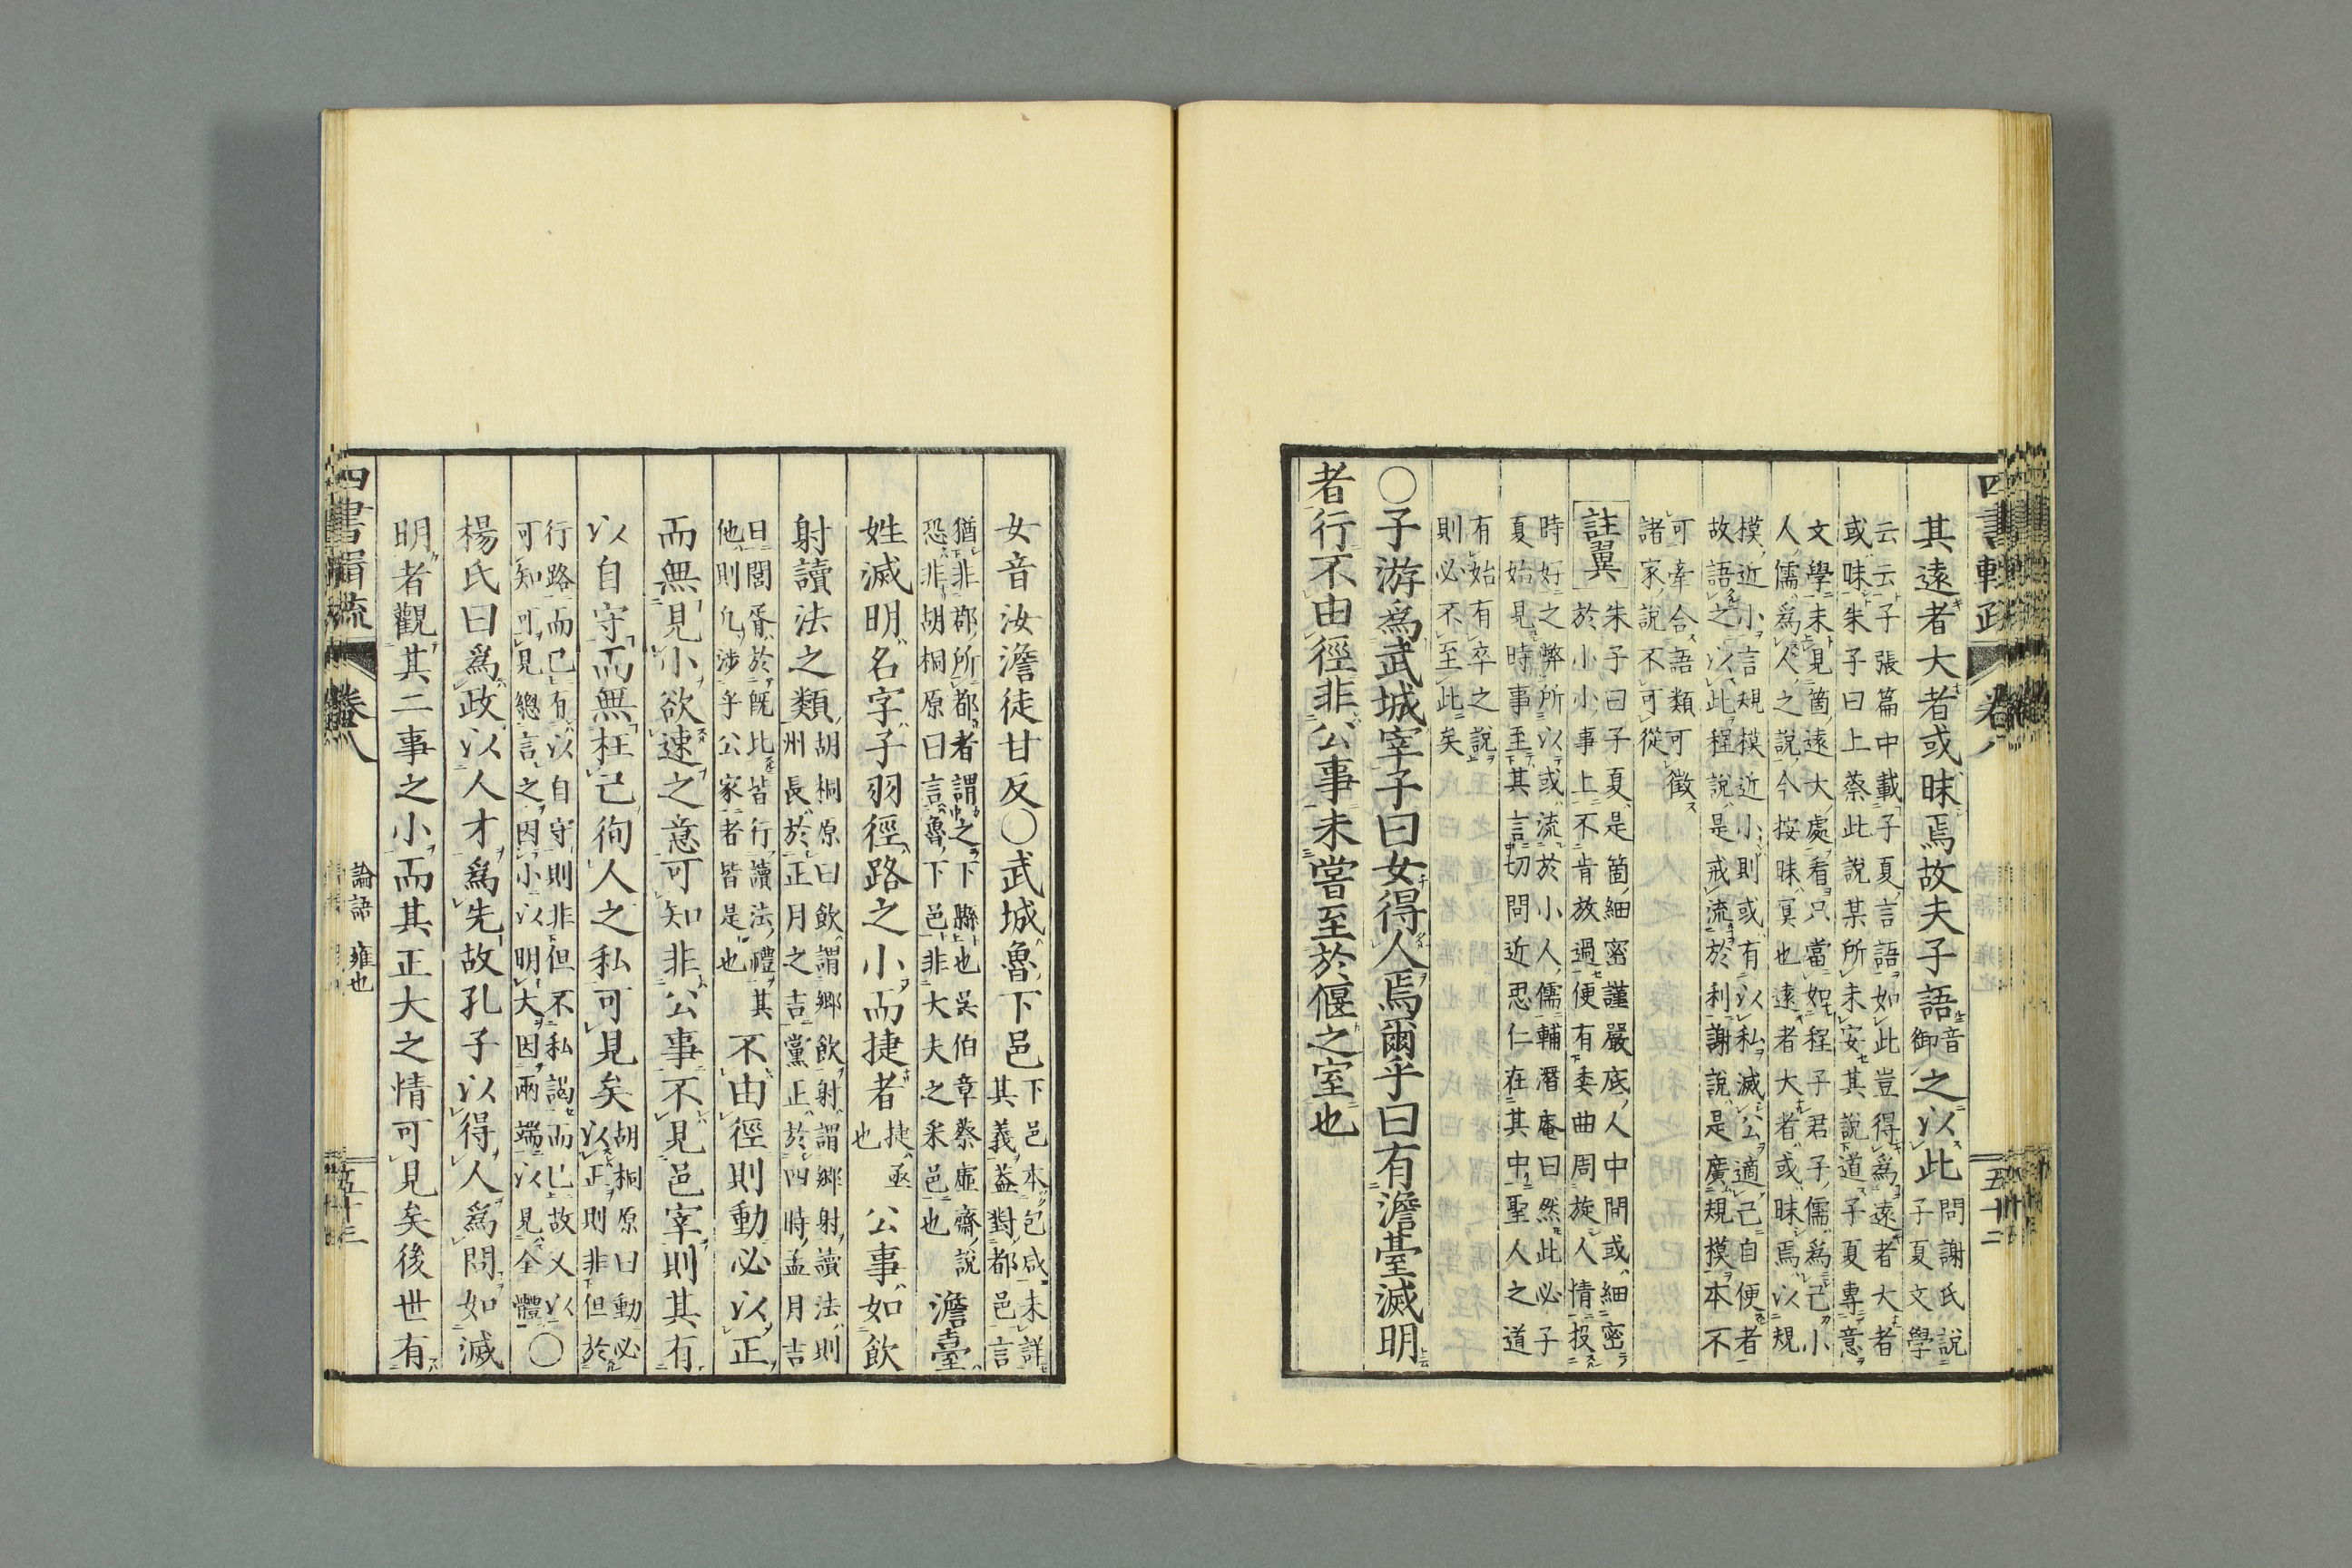 其遠者大者或昧焉故夫子語音御之以此問謝氏說子夏文學
云云子張篇中載子夏言語如此豈得為遠者大者
或昧朱子曰上蔡此說某所未安其說道子夏專意
文學未見箇遠大處看只當如程子君子儒為己小
人儒為人之說今按昧冥也遠者大者或昧焉以規
模近小言規模近小則或有以私滅公適己自便者
故語之以此程說是戒流於利謝說是廣規模本不
可牽合語類可徵
諸家說不可從
註翼朱子曰子夏是箇細密謹嚴底人中間或細密
於小小事上不肯放過便有委曲周旋人情投
時好之弊所以或流於小人儒輔潛庵曰然此必子
夏始見時事至其言切問近思仁在其中聖人之道
有始有卒之說
則必不至此矣
〇子游爲武城宰子曰女得人焉爾乎曰有澹臺滅明
者行不由徑非公事未嘗至於偃之室也
女音汝澹徒甘反〇武城魯下邑下邑本包咸未詳其義蓋對都邑言
猶非郡所都者謂之下縣也吳伯章蔡虛齋說
恐非胡桐原曰言魯下邑非大夫之采邑也澹臺
姓滅明名字子羽徑路之小而捷者捷亟也公事如飲
射讀法之類胡桐原曰飲謂鄉飲射謂鄉射讀法則州長於正月之吉黨正於四時孟月吉
日閭胥於既比皆行讀法禮其
他則凡涉乎公家者皆是也不由徑則動必以正
而無見小欲速之意可知非公事不見邑宰則其有
以自守而無枉己徇人之私可見矣胡桐原曰動必以正則非但於
行路而已有以自守則非但不私謁而已故又以
可知可見總言之因小以明大因兩端以見全體〇
楊氏曰爲政以人才爲先故孔子以得人爲問如滅
明者觀其二事之小而其正大之情可見矣後世有
四書輯疏
卷八
論語 雍也
五十二
五十三